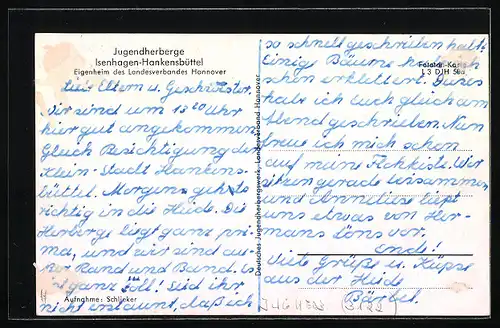 Jugendherberge
Isenhagen-Hankensbüttel
Eigenheim des Landesverbandes Hannover
Liebe Eltern u. Geschwister.
Wir sind um 13 20 Uhr
hier gut angekommen.
Gleich Besichtigung der
Klein-Stadt Hankens-
büttel. Morgens geht's
richtig in die Heide. Die
Herberge liegt ganz pri-
ma, und wir sind außer
Rand und Band. Es ist
ganz toll! Seid ihr
nicht erstaunt, daß ich
Aufnahme: Schlieker
Deutsches Jugendherbergswerk, Landesverband Hannover
Fototon-Karte
L 3 DJH 50a
so schnell geschrieben habe?
Einige Bäume habe ich
schon erklettert. Deshalb
habe ich Euch gleich am
Abend geschrieben. Nun
freue ich mich schon
auf meine Flohkiste. Wir
sitzen gerade beisammen
und Anneliese liest
uns etwas von Her-
manns Löns vor.
Ende!
Viele Grüße u. Küsse
aus der Heide
Bärbel.